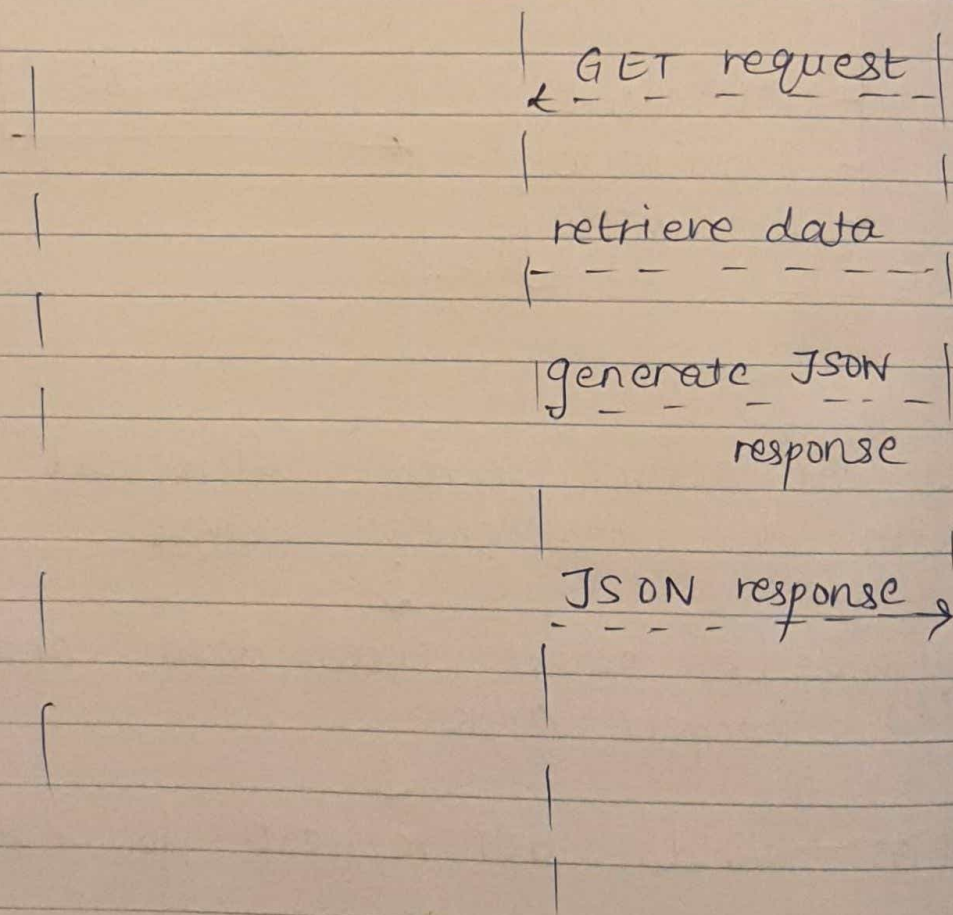 GET request
retrieve data
generate JSON
response
JSON response